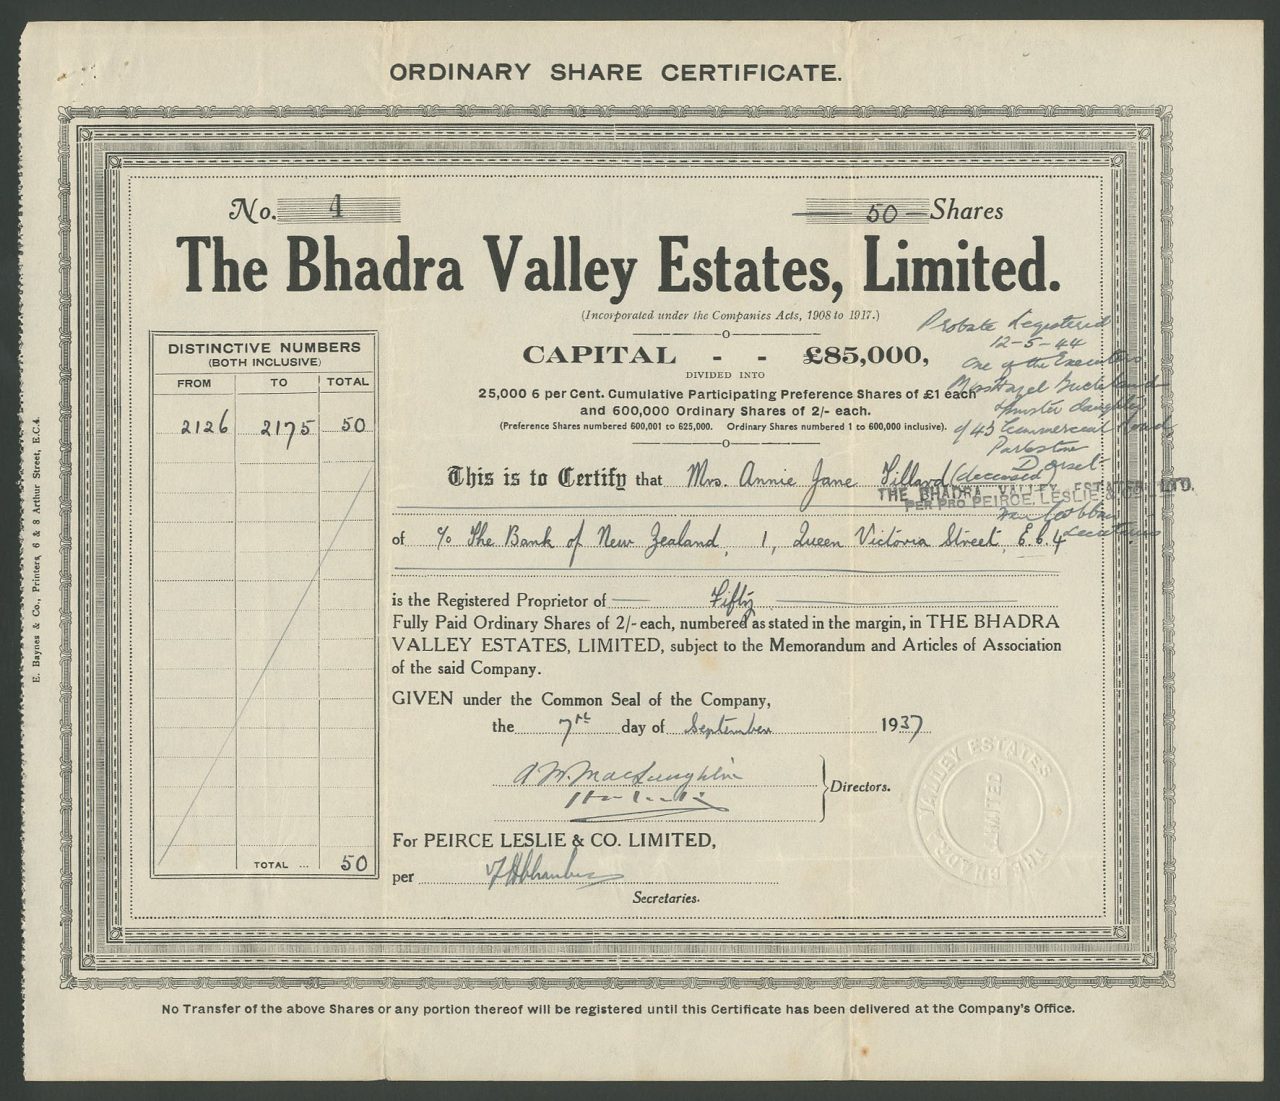 ORDINARY SHARE CERTIFICATE.
No. 4
50 Shares
The Bhadra Valley Estates, Limited.
(Incorporated under the Companies Acts, 1908 to 1917.)
CAPITAL - - £85,000,
DIVIDED INTO
25,000 6 per Cent. Cumulative Participating Preference Shares of £1 each
and 600,000 Ordinary Shares of 2/- each.
(Preference Shares numbered 600,001 to 625,000. Ordinary Shares numbered 1 to 600,000 inclusive).
Probate Registered
12-5-44
One of the Executors
Miss Hazel
Spinster daughter
of 45 Commercial Road
Parkstone
Dorset
THE BHADRA VALLEY ESTATES LTD.
PER PRO PEIRCE, LESLIE & CO.
Secretaries
DISTINCTIVE NUMBERS
(BOTH INCLUSIVE)
FROM TO TOTAL
2126 2175 50
TOTAL ... 50
This is to Certify that Mrs. Annie Jane Tillard (deceased)
of c/o The Bank of New Zealand, 1, Queen Victoria Street, E.C.4
is the Registered Proprietor of Fifty
Fully Paid Ordinary Shares of 2/- each, numbered as stated in the margin, in THE BHADRA
VALLEY ESTATES, LIMITED, subject to the Memorandum and Articles of Association
of the said Company.
GIVEN under the Common Seal of the Company,
the 7th day of September 1937
A. W. MacLaughlin
Directors.
For PEIRCE LESLIE & CO. LIMITED,
per
Secretaries.
THE BHADRA VALLEY ESTATES
LIMITED
No Transfer of the above Shares or any portion thereof will be registered until this Certificate has been delivered at the Company's Office.
E. Baynes & Co., Printers, 6 & 8 Arthur Street, E.C.4.